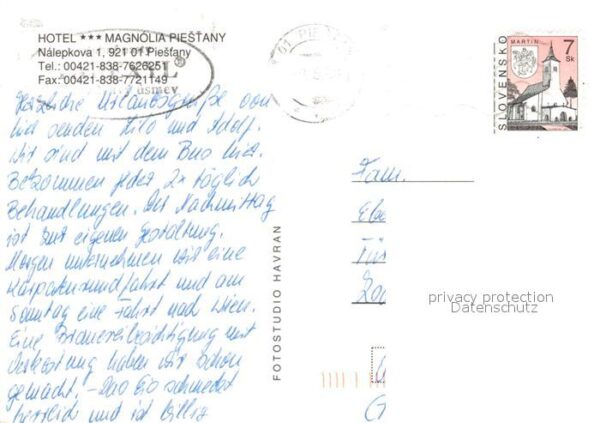 HOTEL *** MAGNÓLIA PIEŠŤANY
Nálepkova 1, 921 01 Piešťany
Tel.: 00421-838-7626251
Fax: 00421-838-7721149
úsmev
Herzliche Urlaubsgrüße von
hier senden und Adolf.
Wir sind mit dem Bus hier.
Bekommen jeder 2x täglich
Behandlungen. Der Nachmittag
ist zur eigenen Gestaltung.
Morgen unternehmen wir eine
Karpatenrundfahrt und am
Sonntag eine Fahrt nach Wien.
Eine Brauereibesichtigung mit
Verkostung haben wir schon
gemacht. – Das schmeckt
herrlich und ist billig
FOTOSTUDIO HAVRAN
01 PIEŠŤ
MARTIN
7
Sk
SLOVENSKO
Fam.
Ebe
privacy protection
Datenschutz